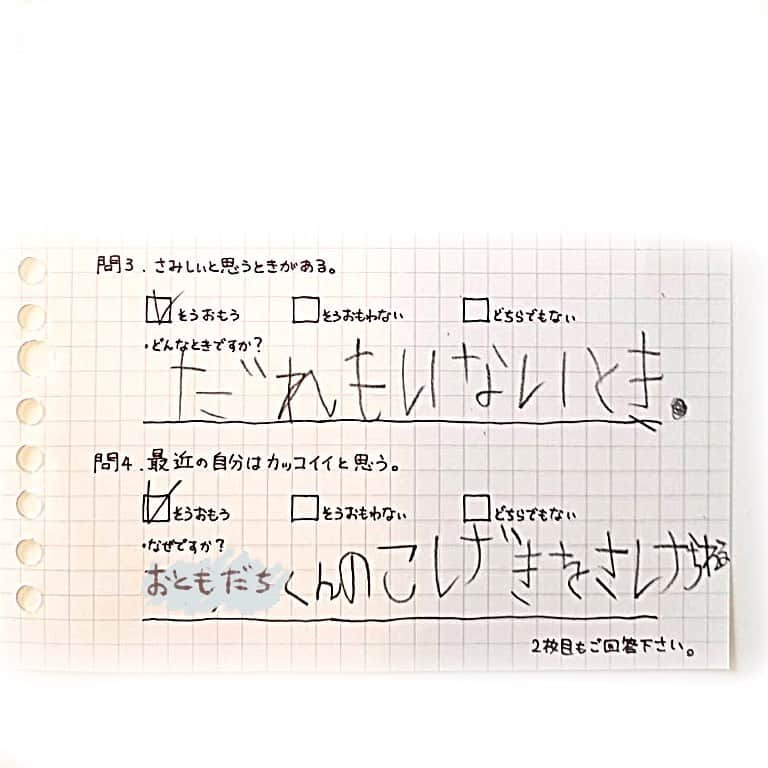 問3.さみしいと思うときがある。
そうおもう そうおもわない どちらでもない
・どんなときですか?
だれもいないとき。
問4.最近の自分はカッコイイと思う。
そうおもう そうおもわない どちらでもない
・なぜですか?
おともだちくんのこげきをさけられる
2枚目もご回答下さい。